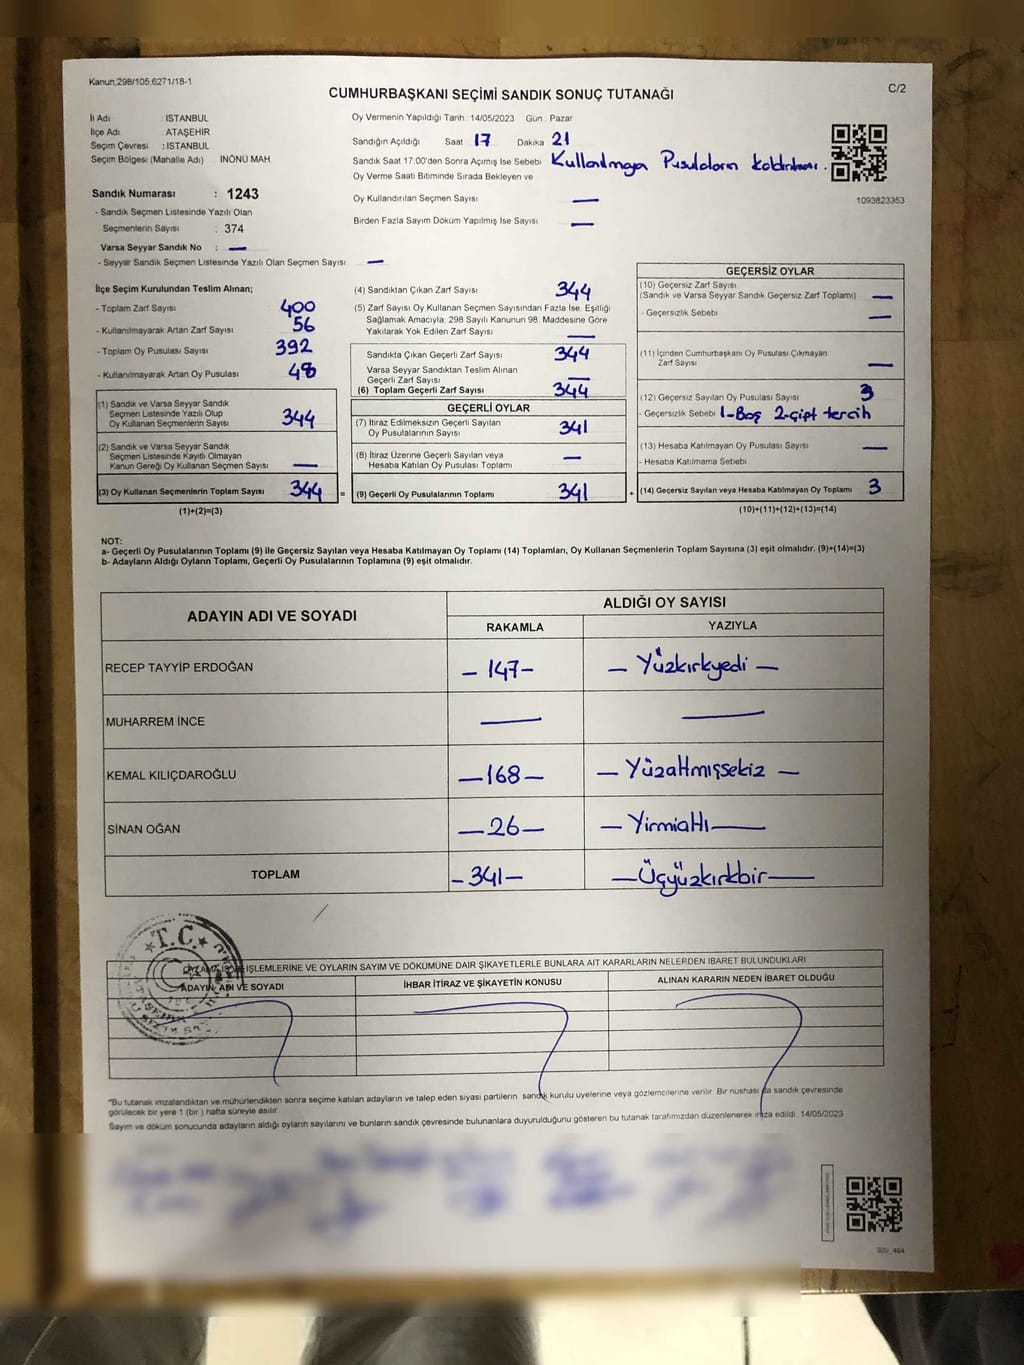 Kanun:298/105 6271/18-1
C/2
CUMHURBAŞKANI SEÇİMİ SANDIK SONUÇ TUTANAĞI
İl Adı : İSTANBUL
İlçe Adı : ATAŞEHİR
Seçim Çevresi : İSTANBUL
Seçim Bölgesi (Mahalle Adı) İNÖNÜ MAH.
Sandık Numarası : 1243
- Sandık Seçmen Listesinde Yazılı Olan
Seçmenlerin Sayısı : 374
Varsa Seyyar Sandık No : —
- Seyyar Sandık Seçmen Listesinde Yazılı Olan Seçmen Sayısı : —
Oy Vermenin Yapıldığı Tarih : 14/05/2023 Gün : Pazar
Sandığın Açıldığı Saat 17 Dakika 21
Sandık Saat 17:00'den Sonra Açımış İse Sebebi Kullanılmayan Pusulaların kaldırılması.
Oy Verme Saati Bitiminde Sırada Bekleyen ve
Oy Kullandırılan Seçmen Sayısı —
Birden Fazla Sayım Döküm Yapılmış İse Sayısı —
1093823353
İlçe Seçim Kurulundan Teslim Alınan;
- Toplam Zarf Sayısı 400
- Kullanılmayarak Artan Zarf Sayısı 56
- Toplam Oy Pusulası Sayısı 392
- Kullanılmayarak Artan Oy Pusulası 48
(1) Sandık ve Varsa Seyyar Sandık
Seçmen Listesinde Yazılı Olup
Oy Kullanan Seçmenlerin Sayısı 344
(2) Sandık ve Varsa Seyyar Sandık
Seçmen Listesinde Kayıtlı Olmayan
Kanun Gereği Oy Kullanan Seçmen Sayısı —
(3) Oy Kullanan Seçmenlerin Toplam Sayısı 344 =
(1)+(2)=(3)
(4) Sandıktan Çıkan Zarf Sayısı 344
(5) Zarf Sayısı Oy Kullanan Seçmen Sayısından Fazla İse, Eşitliği
Sağlamak Amacıyla, 298 Sayılı Kanunun 98. Maddesine Göre
Yakılarak Yok Edilen Zarf Sayısı —
Sandıkta Çıkan Geçerli Zarf Sayısı 344
Varsa Seyyar Sandıktan Teslim Alınan
Geçerli Zarf Sayısı —
(6) Toplam Geçerli Zarf Sayısı 344
GEÇERLİ OYLAR
(7) İtiraz Edilmeksizin Geçerli Sayılan
Oy Pusulalarının Sayısı 341
(8) İtiraz Üzerine Geçerli Sayılan veya
Hesaba Katılan Oy Pusulası Toplamı —
(9) Geçerli Oy Pusulalarının Toplamı 341 +
GEÇERSİZ OYLAR
(10) Geçersiz Zarf Sayısı
(Sandık ve Varsa Seyyar Sandık Geçersiz Zarf Toplamı) —
- Geçersizlik Sebebi —
(11) İçinden Cumhurbaşkanı Oy Pusulası Çıkmayan
Zarf Sayısı —
(12) Geçersiz Sayılan Oy Pusulası Sayısı 3
- Geçersizlik Sebebi 1-Boş 2-çift tercih
(13) Hesaba Katılmayan Oy Pusulası Sayısı —
- Hesaba Katılmama Sebebi
(14) Geçersiz Sayılan veya Hesaba Katılmayan Oy Toplamı 3
(10)+(11)+(12)+(13)=(14)
NOT:
a- Geçerli Oy Pusulalarının Toplamı (9) ile Geçersiz Sayılan veya Hesaba Katılmayan Oy Toplamı (14) Toplamları, Oy Kullanan Seçmenlerin Toplam Sayısına (3) eşit olmalıdır. (9)+(14)=(3)
b- Adayların Aldığı Oyların Toplamı, Geçerli Oy Pusulalarının Toplamına (9) eşit olmalıdır.
ADAYIN ADI VE SOYADI ALDIĞI OY SAYISI
RAKAMLA YAZIYLA
RECEP TAYYİP ERDOĞAN – 147 – – Yüzkırkyedi –
MUHARREM İNCE — —
KEMAL KILIÇDAROĞLU – 168 – – Yüzaltmışsekiz –
SİNAN OĞAN – 26 – – Yirmialtı –
TOPLAM – 341 – – Üçyüzkırkbir –
T.C.
OYLAMA İŞ VE İŞLEMLERİNE VE OYLARIN SAYIM VE DÖKÜMÜNE DAİR ŞİKAYETLERLE BUNLARA AİT KARARLARIN NELERDEN İBARET BULUNDUKLARI
ADAYIN ADI VE SOYADI İHBAR İTİRAZ VE ŞİKAYETİN KONUSU ALINAN KARARIN NEDEN İBARET OLDUĞU
"Bu tutanak imzalandıktan ve mühürlendikten sonra seçime katılan adayların ve talep eden siyasi partilerin sandık kurulu üyelerine veya gözlemcilerine verilir. Bir nushası da sandık çevresinde
görülecek bir yere 1 (bir ) hafta süreyle asılır.
Sayım ve döküm sonucunda adayların aldığı oyların sayılarını ve bunların sandık çevresinde bulunanlara duyurulduğunu gösteren bu tutanak tarafımızdan düzenlenerek imza edildi. 14/05/2023